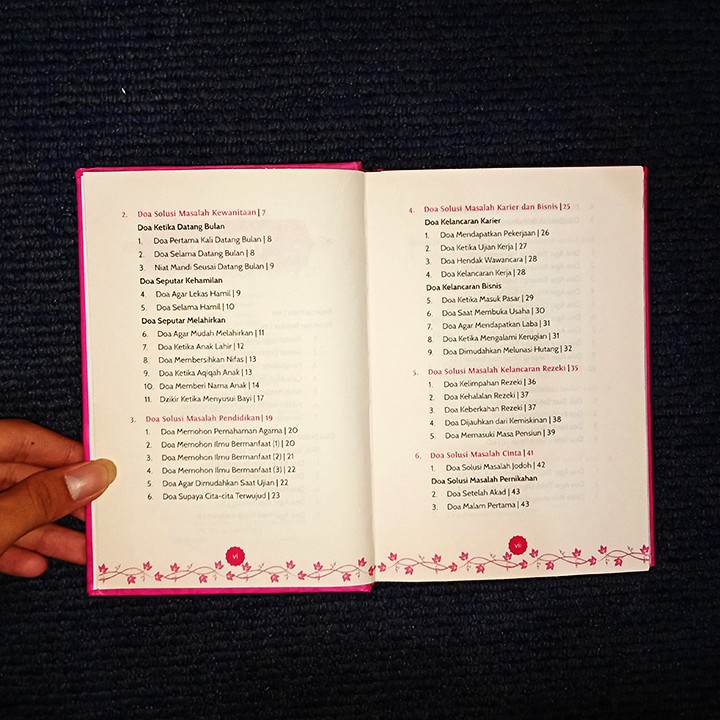 2. Doa Solusi Masalah Kewanitaan | 7
Doa Ketika Datang Bulan
1. Doa Pertama Kali Datang Bulan | 8
2. Doa Selama Datang Bulan | 8
3. Niat Mandi Seusai Datang Bulan | 9
Doa Seputar Kehamilan
4. Doa Agar Lekas Hamil | 9
5. Doa Selama Hamil | 10
Doa Seputar Melahirkan
6. Doa Agar Mudah Melahirkan | 11
7. Doa Ketika Anak Lahir | 12
8. Doa Membersihkan Nifas | 13
9. Doa Ketika Aqiqah Anak | 13
10. Doa Memberi Nama Anak | 14
11. Dzikir Ketika Menyusui Bayi | 17
3. Doa Solusi Masalah Pendidikan | 19
1. Doa Memohon Pemahaman Agama | 20
2. Doa Memohon Ilmu Bermanfaat (1) | 20
3. Doa Memohon Ilmu Bermanfaat (2) | 21
4. Doa Memohon Ilmu Bermanfaat (3) | 22
5. Doa Agar Dimudahkan Saat Ujian | 22
6. Doa Supaya Cita-cita Terwujud | 23
vi
4. Doa Solusi Masalah Karier dan Bisnis | 25
Doa Kelancaran Karier
1. Doa Mendapatkan Pekerjaan | 26
2. Doa Ketika Ujian Kerja | 27
3. Doa Hendak Wawancara | 28
4. Doa Kelancaran Kerja | 28
Doa Kelancaran Bisnis
5. Doa Ketika Masuk Pasar | 29
6. Doa Saat Membuka Usaha | 30
7. Doa Agar Mendapatkan Laba | 31
8. Doa Ketika Mengalami Kerugian | 31
9. Doa Dimudahkan Melunasi Hutang | 32
5. Doa Solusi Masalah Kelancaran Rezeki | 35
1. Doa Kelimpahan Rezeki | 36
2. Doa Kehalalan Rezeki | 37
3. Doa Keberkahan Rezeki | 37
4. Doa Dijauhkan dari Kemiskinan | 38
5. Doa Memasuki Masa Pensiun | 39
6. Doa Solusi Masalah Cinta | 41
1. Doa Solusi Masalah Jodoh | 42
Doa Solusi Masalah Pernikahan
2. Doa Setelah Akad | 43
3. Doa Malam Pertama | 43
vii